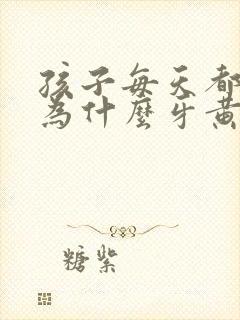 孩子每天都
為什麼牙黃
糖紫